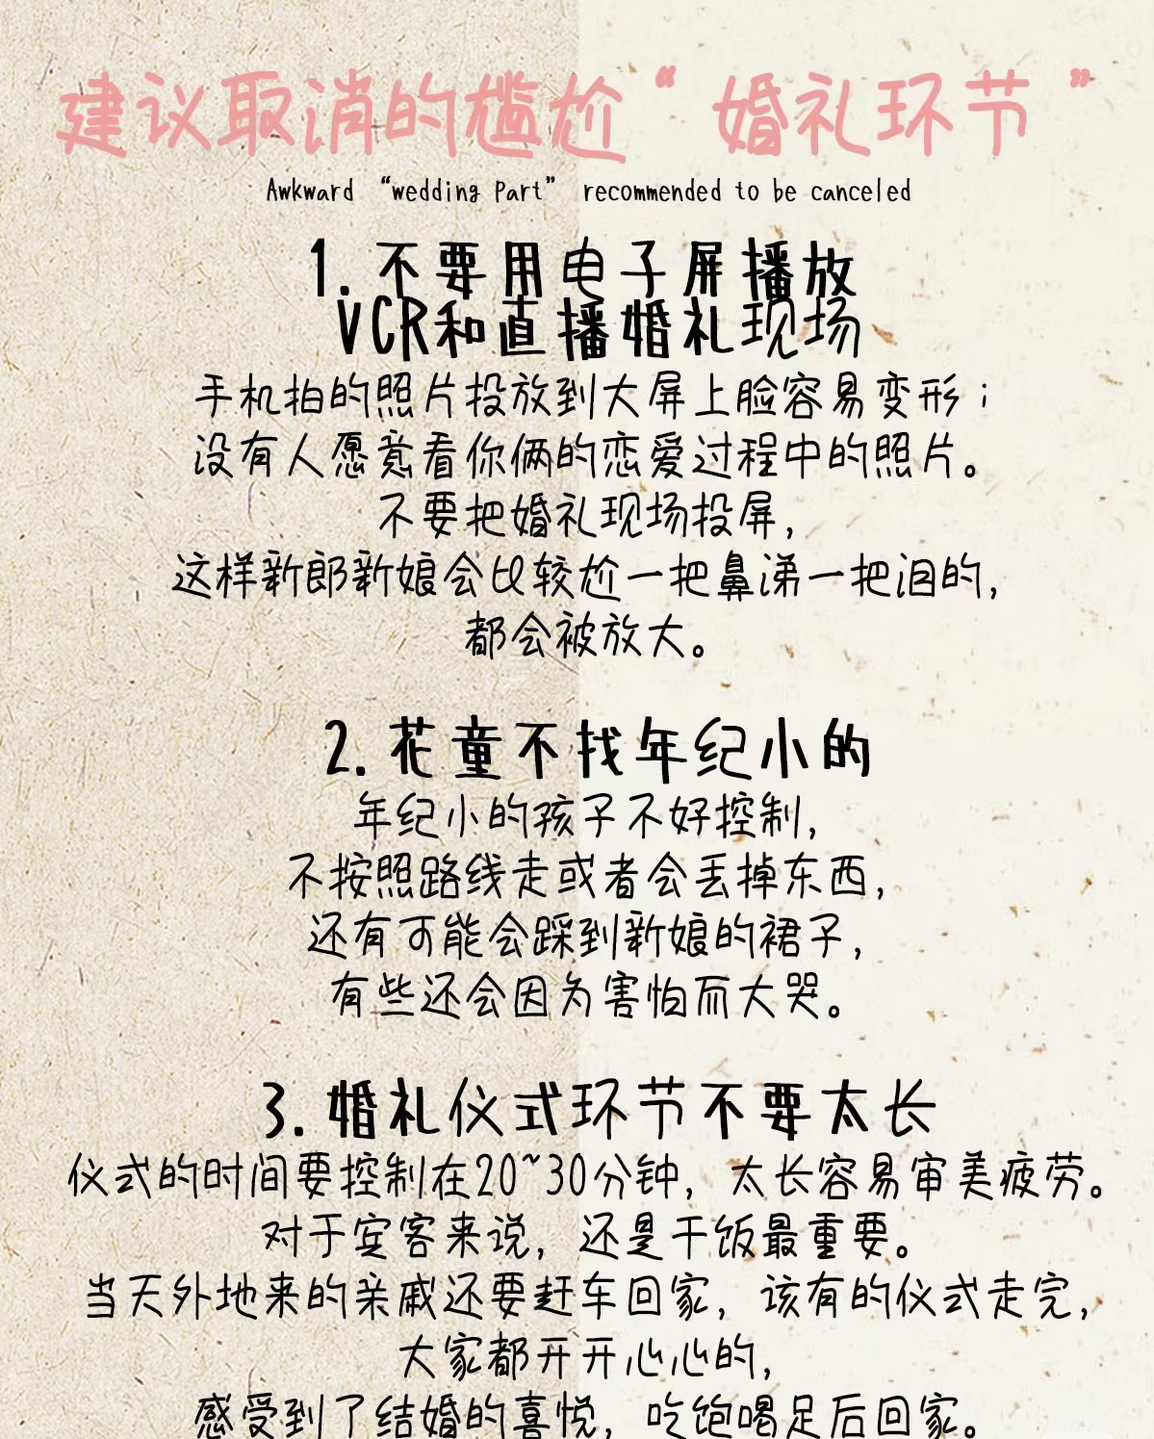 建议取消的尴尬“婚礼环节”
Awkward “wedding Part” recommended to be canceled
1.不要用电子屏播放
VCR和直播婚礼现场
手机拍的照片投放到大屏上脸容易变形；
没有人愿意看你俩的恋爱过程中的照片。
不要把婚礼现场投屏，
这样新郎新娘会比较尬一把鼻涕一把泪的，
都会被放大。
2.花童不找年纪小的
年纪小的孩子不好控制，
不按照路线走或者会丢掉东西，
还有可能会踩到新娘的裙子，
有些还会因为害怕而大哭。
3.婚礼仪式环节不要太长
仪式的时间要控制在20~30分钟，太长容易审美疲劳。
对于宾客来说，还是干饭最重要。
当天外地来的亲戚还要赶车回家，该有的仪式走完，
大家都开开心心的，
感受到了结婚的喜悦，吃饱喝足后回家。